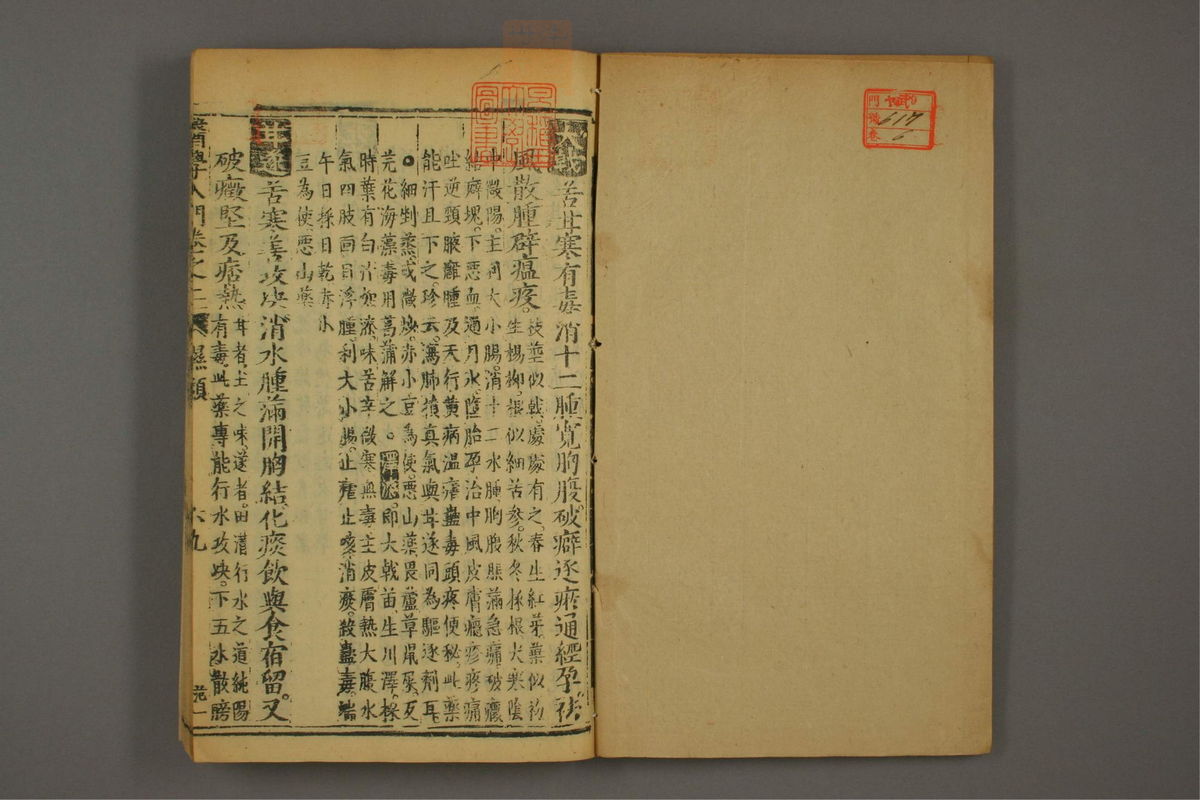 大戟苦甘寒有毒消十二腫寬胸腹破癖逐瘀通經孕祛
風散腫辟瘟疫。枝莖似戟處處有之春生紅芽葉似初
生楊柳根似細苦參。秋冬採根火煞陰
中微陽。主利大小腸。消十二水腫胸腹脹滿急痛。破癥
結癖塊。下惡血。通月水。墮胎孕。治中風皮膚癮疹疼痛
吐逆頸腋癰腫及天行黃病溫瘧蠱毒頭疼便秘。此藥
能汗且下之。珍云。瀉肺損真氣與甘遂同為驅逐劑耳
○細剉蒸或微炒。赤小豆為使。惡山藥畏蘆草鼠屎。反
芫花海藻毒用菖蒲解之。澤漆即大戟苗。生川澤。採
時葉有白汁如漆。味苦辛微寒無毒。主皮膚熱大腹水
氣四肢面目浮腫。利大小腸。止瘧止嗽。消痰。殺蠱毒。端
午日採日乾赤小
豆為使。惡山藥
甘遂苦寒善攻決消水腫滿開胸結化痰飲與食宿留。又
破癥堅及痞熱甘者。土之味。遂者。田溝行水之道。純陽
有毒。此藥專能行水攻決。下五水散膀
醫學入門卷之二 濕類 六九
門 號 617 卷 6